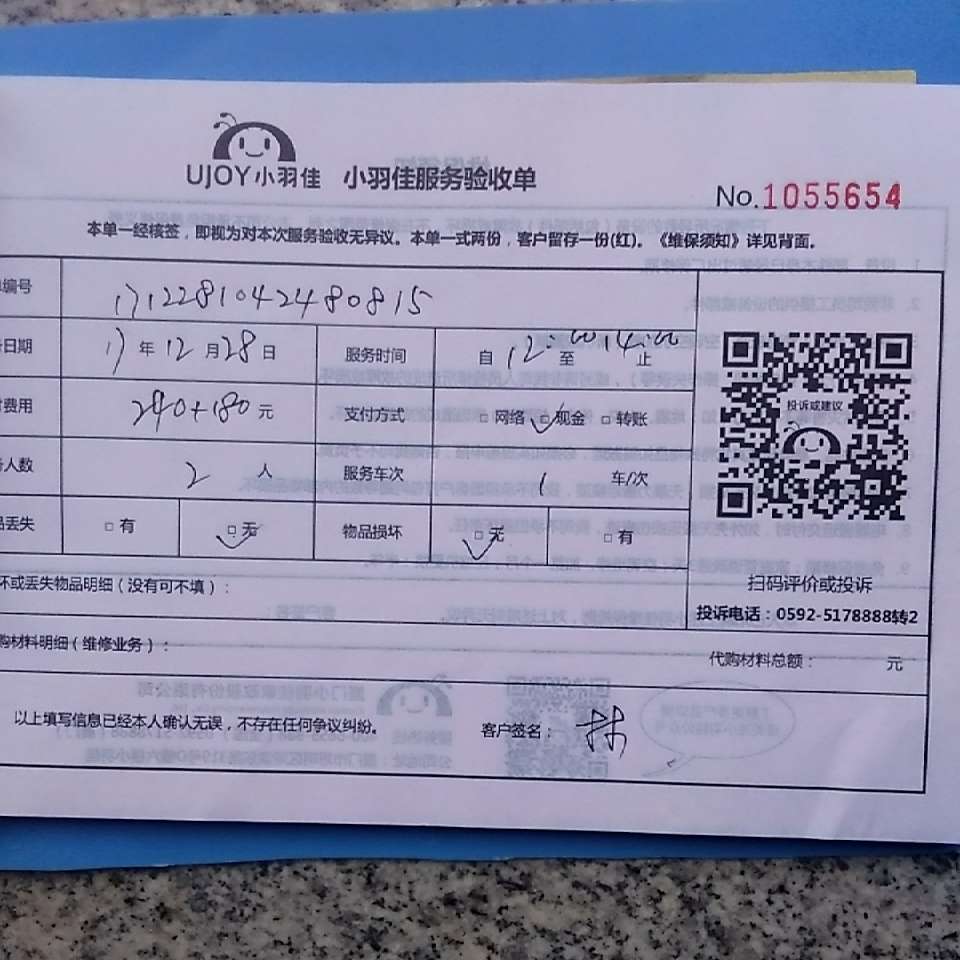 UJOY小羽佳 小羽佳服务验收单
No.1055654
本单一经核签，即视为对本次服务验收无异议。本单一式两份，客户留存一份(红)。《维保须知》详见背面。
编号 1712281042480815
日期 17年12月28日 服务时间 自12:00至14:00止
费用 240+180元 支付方式 □网络 ☑现金 □转账
人数 2人 服务车次 1 车/次
丢失 □有 ☑无 物品损坏 ☑无 □有
投诉或建议
扫码评价或投诉
投诉电话：0592-5178888转2
坏或丢失物品明细（没有可不填）：
购材料明细（维修业务）：
代购材料总额： 元
以上填写信息已经本人确认无误，不存在任何争议纠纷。 客户签名： 林